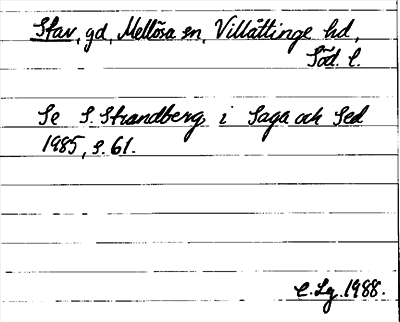 Stav, gd, Mellösa sn, Villåttinge hd,
Söd. l.
Se S. Strandberg i Saga och Sed
1985, s. 61.
E. Lg. 1988.